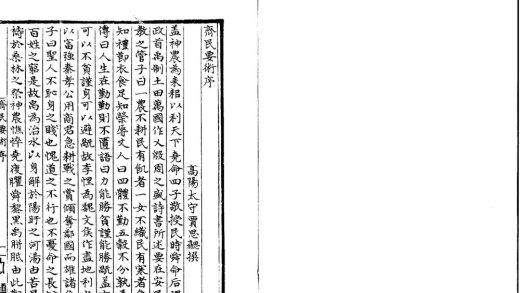 齊民要術序
高陽太守賈思勰撰
蓋神農為耒耜以利天下堯命四子敬授民時舜命后
政首禹制土田萬國作乂殷周之盛詩書所述要在安
教之管子曰一農不耕民有飢者一女不織民有寒者
知禮節衣食足知榮辱丈人曰四體不勤五穀不分孰
傳曰人生在勤勤則不匱語曰力能勝貧謹能勝禍蓋
可以不貧謹身可以避禍故李悝為魏文侯作盡地利
以富強秦孝公用商君急耕戰之賞傾奪鄰國而雄諸
子曰聖人不恥身之賤也愧道之不行也不憂命之長
百姓之窮是故禹為治水以身解於陽盱之河湯由苦
禱於桑林之祭神農憔悴堯瘦癯舜黎黑禹胼胝由此
齊民要術序